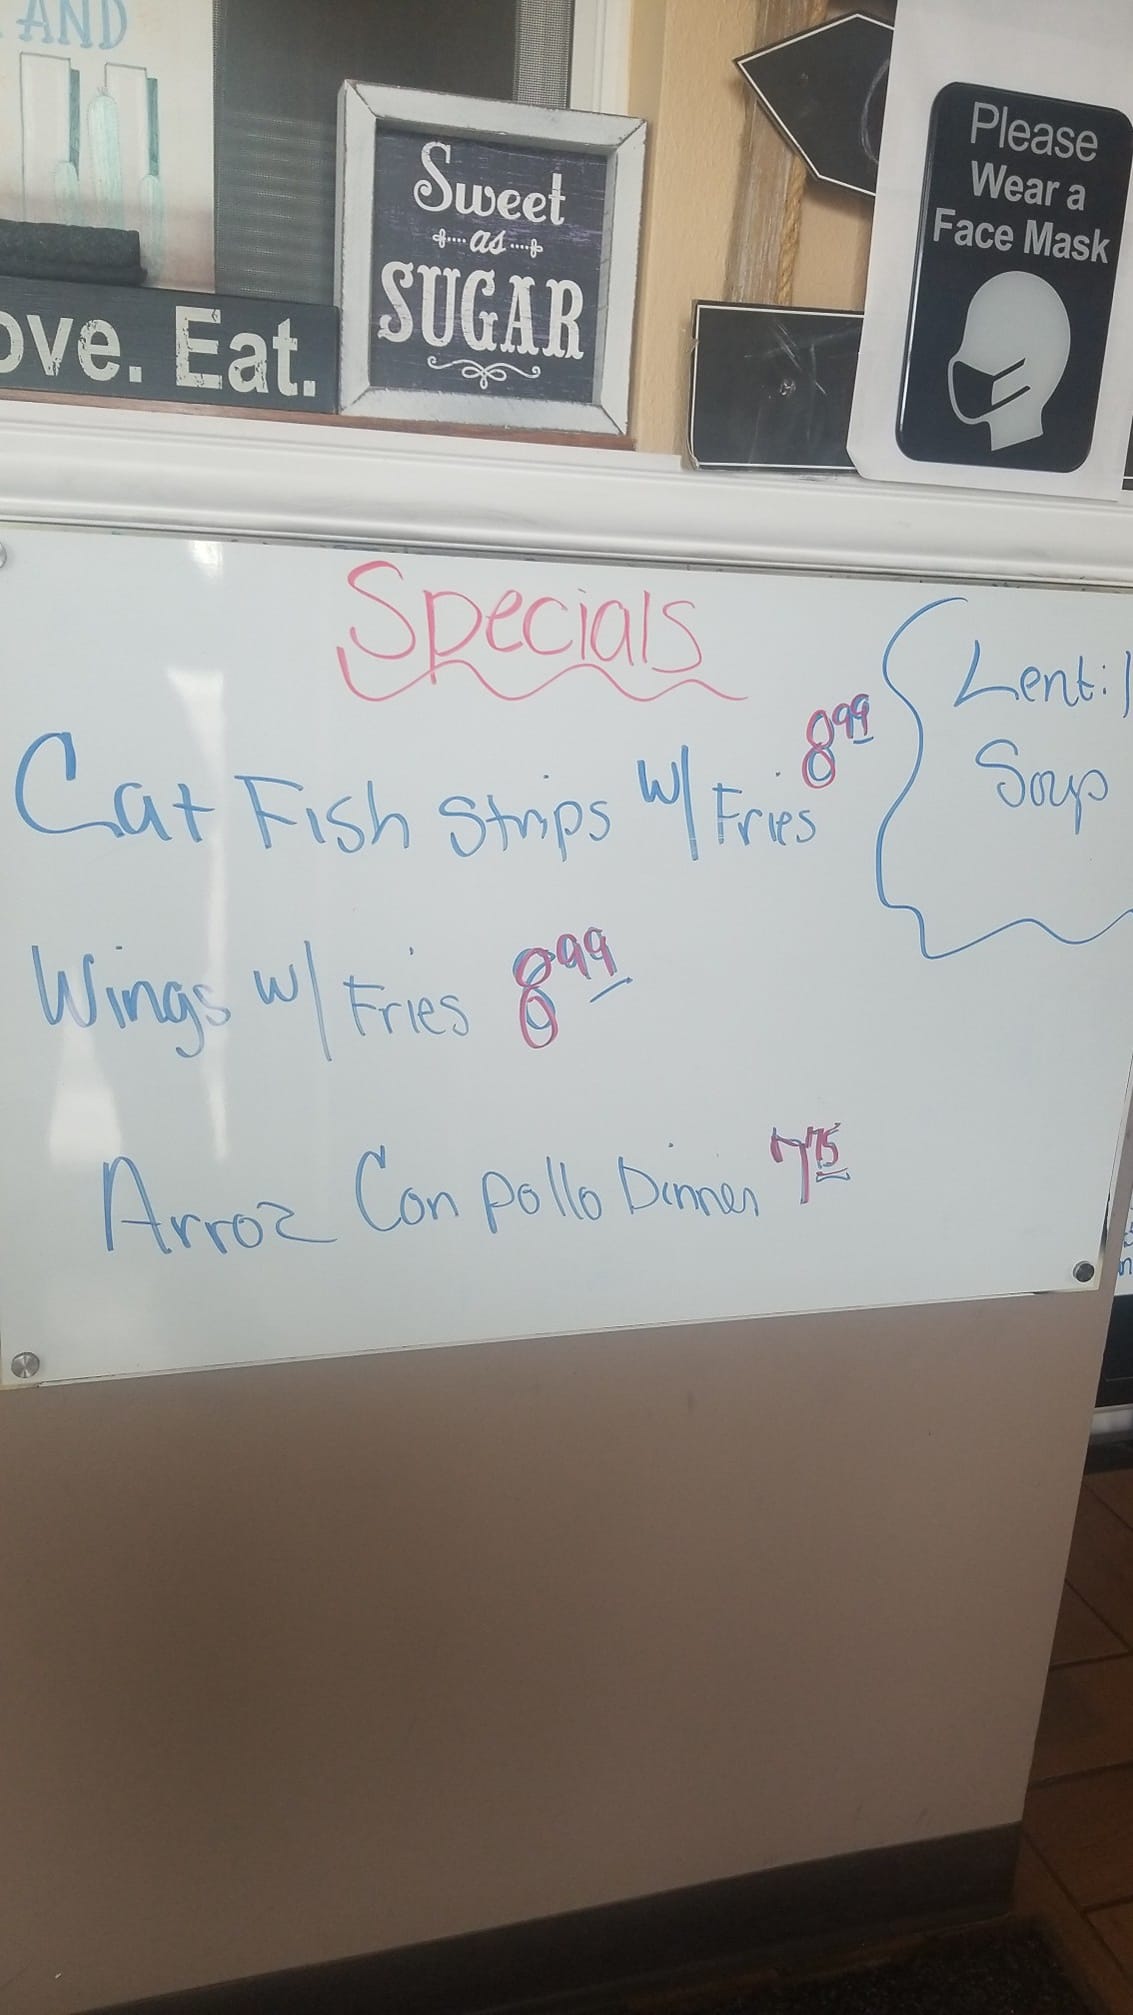 AND
ove. Eat.
Sweet
as
SUGAR
Please
Wear a
Face Mask
Specials
Cat Fish Strips w/ Fries 8.99
Wings w/ Fries 8.99
Arroz Con pollo Dinner 7.75
Lentil
Soup